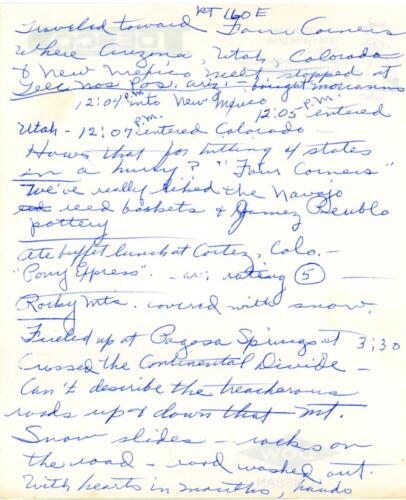 RT 160 E
Traveled toward Four Corners
Where Arizona, Utah, Colorado
& New Mexico meet, stopped at
Teec Nos Pos, ariz - bought moccasins
12:04 P.M. into New Mexico
12:05 P.M. entered
Utah - 12:07 P.M. entered Colorado -
Hows that for hitting 4 states
in a hurry? "Four Corners"
We've really liked the Navajo
reed baskets & Jamez Peublo
pottery
Ate buffet lunch at Cortez, Colo. -
"Pony Express" - a rating 5 -
Rocky Mts. covered with snow.
Fueled up at Pagosa Springs at 3:30
Crossed the Continental Divide -
Can't describe the treacherous
roads up & down that Mt.
Snow slides - rocks on
the road - road washed out.
With hearts in mouths, hands